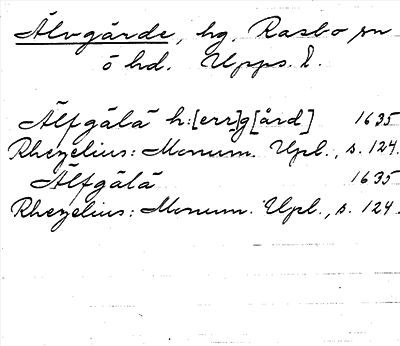 Älvgärde, hg. Rasbo sn
ö hd. Upps. l.
Älfgälä h:[err]g[ård] 1635
Rhezelius: Monum. Upl., s. 124.
Älfgälä 1635
Rhezelius: Monum. Upl., s. 124.